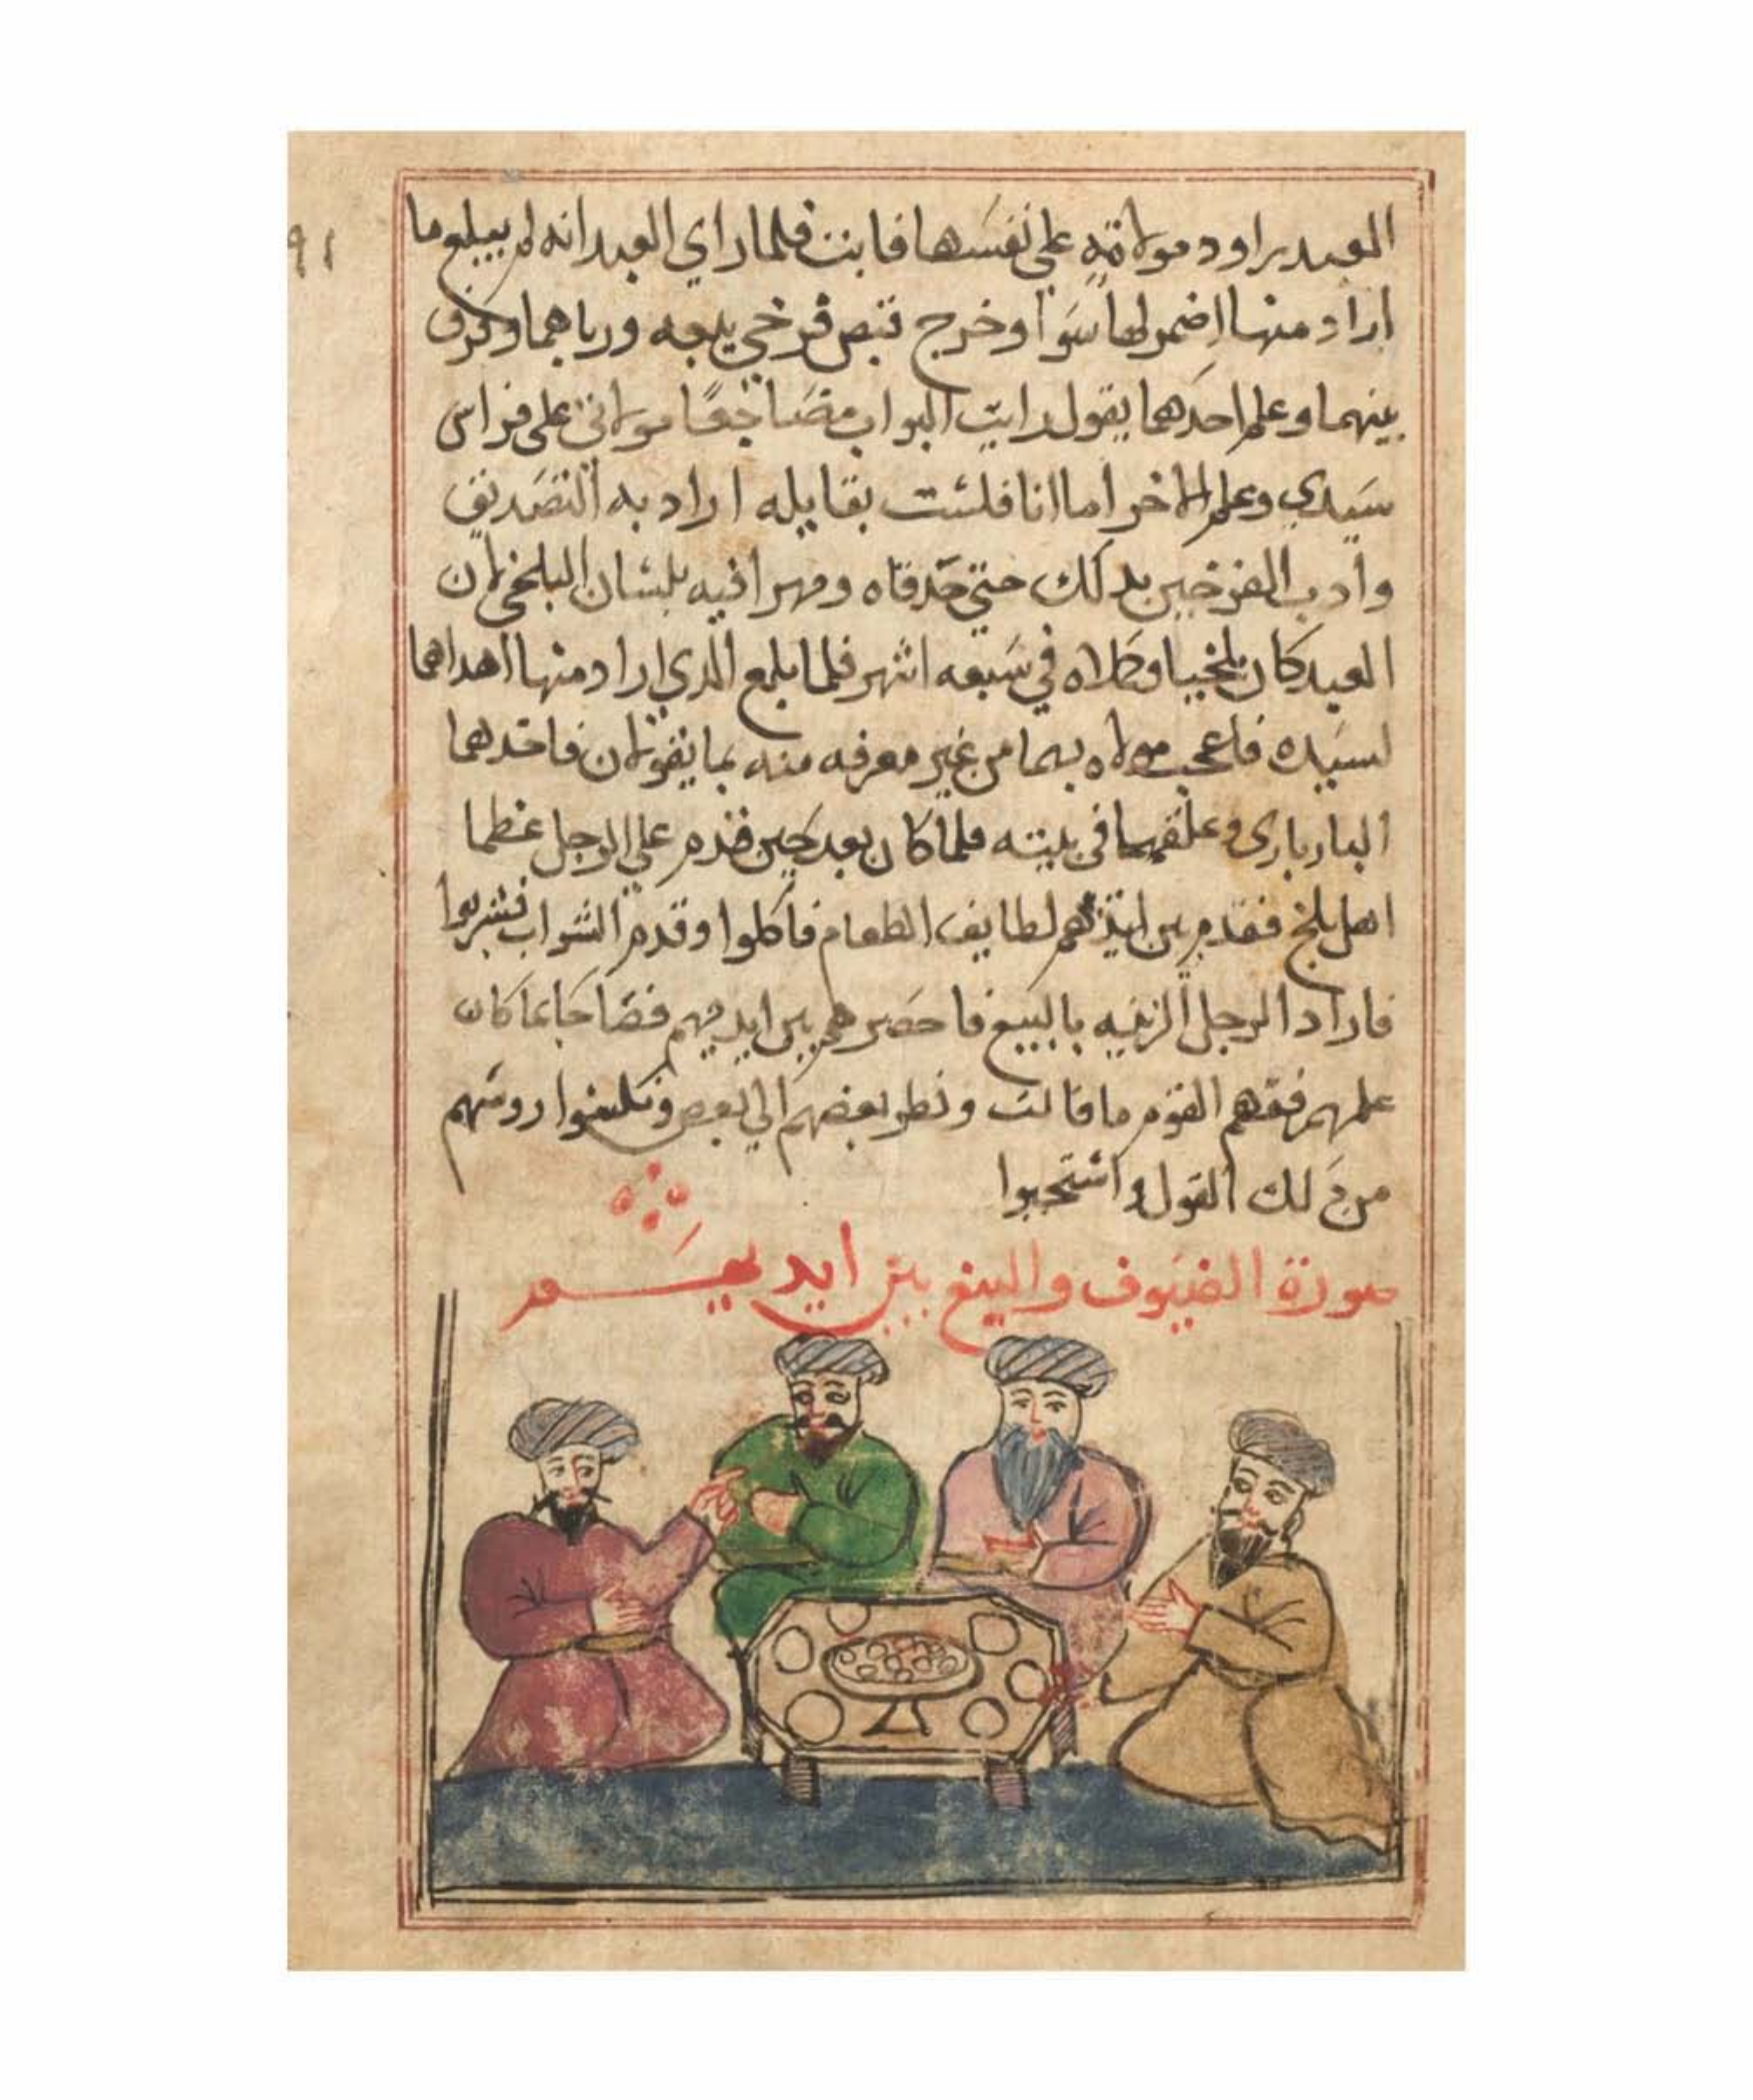 العبد يراود مولاته علي نفسها فابت فلما راي العبد انه لم يبلغ ما
اراد منها اضمر لها سوا وخرج فقبص فرخي ببغه ورباهما وفرق
بينهما وعلم احدهما يقول رايت البواب مضاجعا مولاتي علي فراش
سيدي وعلم الاخر اما انا فلست بقايله اراد به التصديق
وادب الفرخين بدلك حتي حدقاه ومهرا فيه بلسان البلخي لان
العبد كان بلخيا وكلاه في سبعه اشهر فلما بلغ الدي اراد منها اهداهما
لسيده فاعجب مولاه بهما من غير معرفه منه بما يقولان فاخدهما
البازياري وعلقهما في بيته فلما كان بعد حين قدم علي الرجل عظما
اهل بلخ فقدم بين ايديهم لطايف الطعام فاكلوا وقدم الشراب فشربوا
فاراد الرجل الزينه بالببغ فاحضرهم بين ايديهم فصاحا بما كان
علمهم ففهم القوم ما قالت ونظر بعضهم الي بعص ونكسوا روسهم
من دلك القول واستحيوا
صورة الضيوف والببغ بين ايديهم
٩١